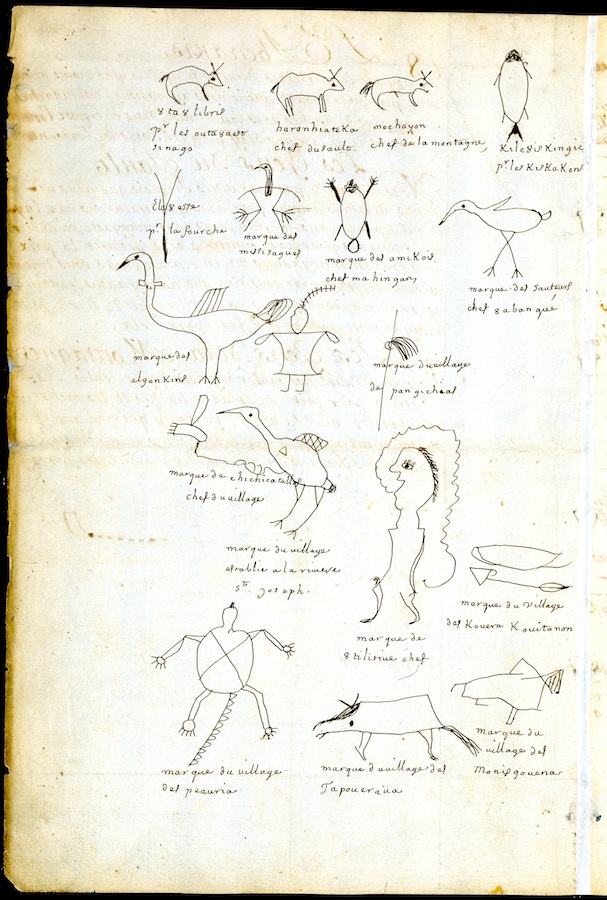 8ta8libris
pr les outa8aes
sinago
haronhiateka
chef du sault.
mechayon
chef de la montagne,
Kile8iskingie
pr les KisKaKons
Ela8esse
pr la fourche
marque des
missisagues
marque des amikois
chef mahingan,
marque des sauteurs
chef 8abangué
marque des
algonKins
marque du village
de pangicheas
marque de chichicatalle
chef du village
marque du village
establie a la riviere
st. Joseph.
marque de
8tilirine chef
marque du Village
des Kouera Kouitanon
marque du village
des peauria
marque du village des
Tapoueraüa
marque du
village des
Monisgouena